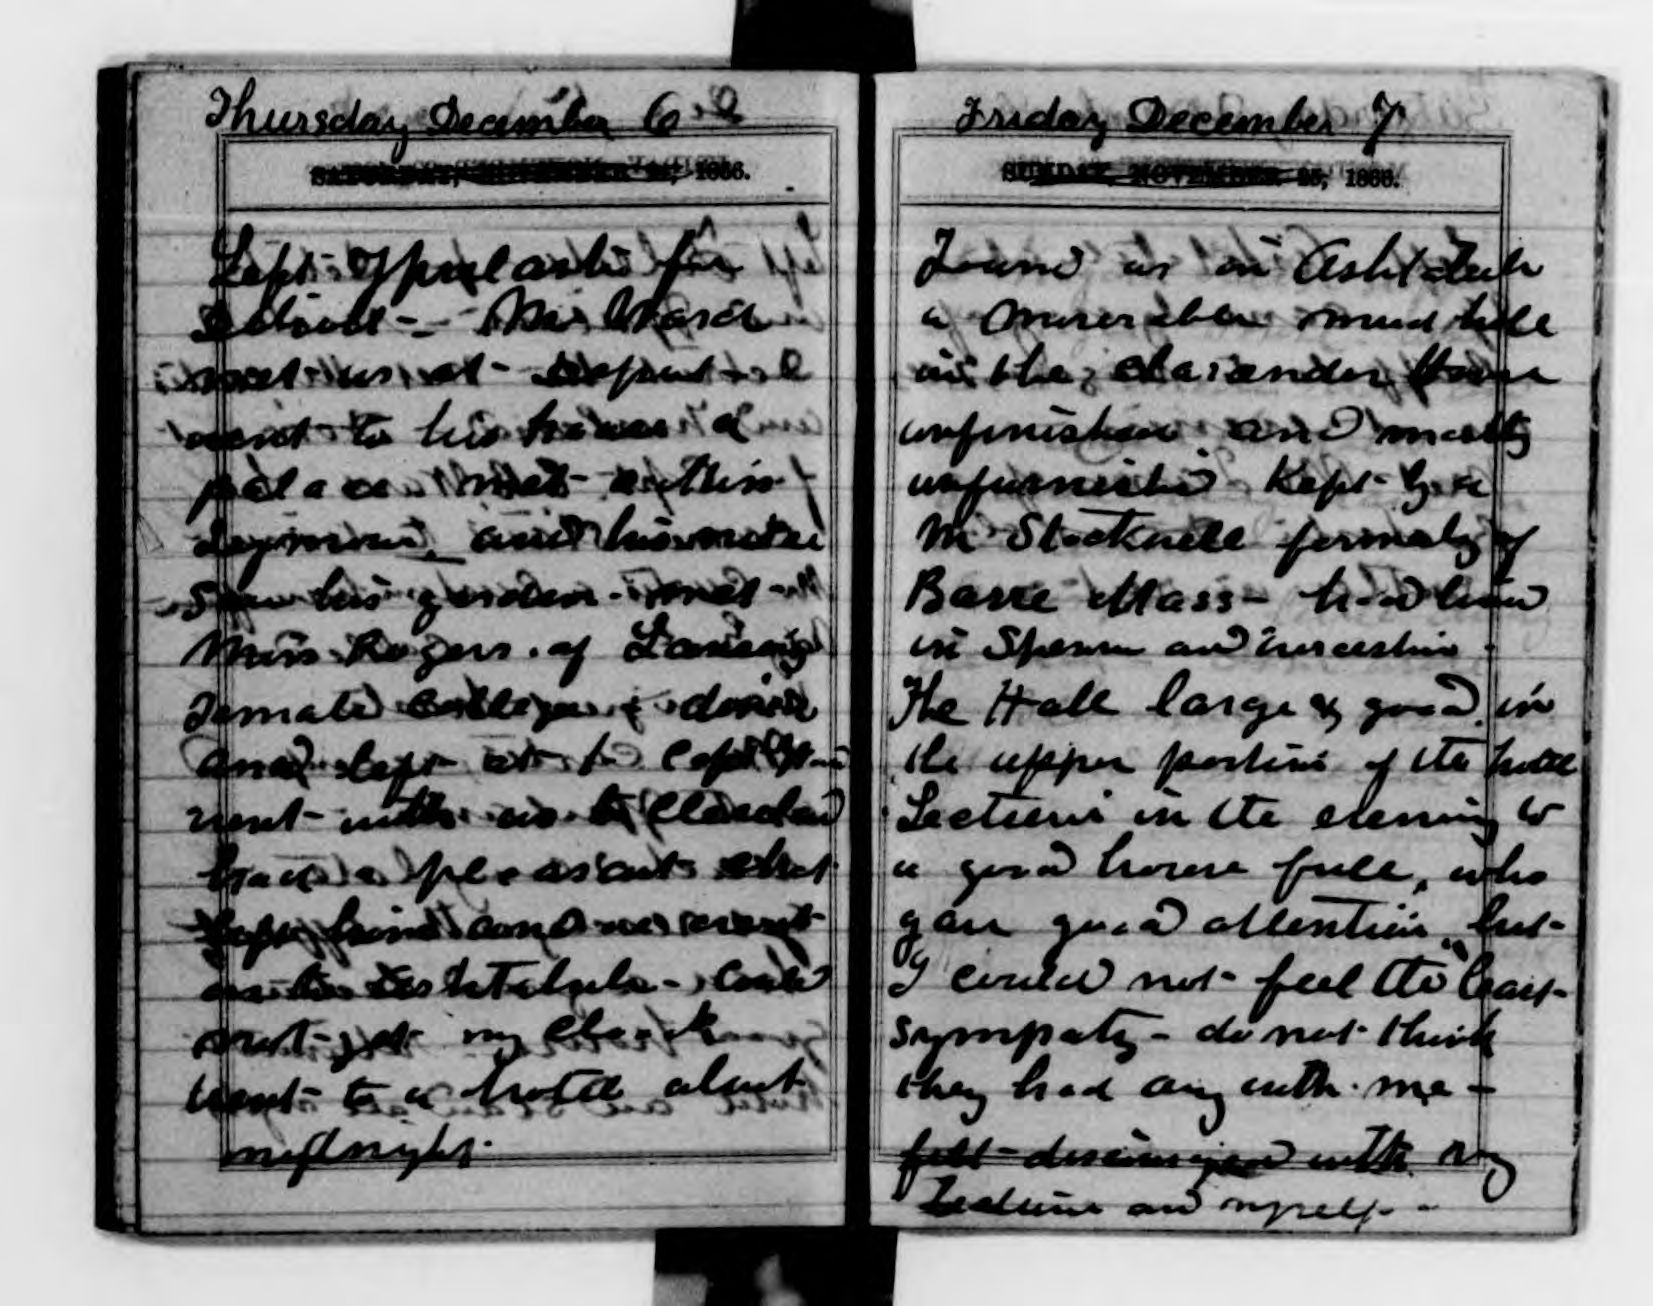 Thursday December 6
SATURDAY, NOVEMBER 24, 1866.
Left Ypsilanti for
Detroit - Mr Ward
met us at depot
went to his house a
palace met
Seymour, and his
Saw his garden - met
Miss Rogers of Lansing
Female College &
and left at
went with us to Cleveland
had a pleasant chat
left him and we went
on to Ashtabula - Could
not get my check
went to a hotel about
midnight.
Friday December 7
SUNDAY, NOVEMBER 25, 1866.
Found us in Ashtabula
a miserable mud hole
in the House
unfinished and mostly
unfurnished Kept by a
Mr Stockwell formerly of
Barre Mass - had lived
in Spencer and Worcester -
The Hall large & good in
the upper portion of the hotel
Lecture in the evening to
a good house full, who
gave good attention but
I could not feel the least
sympathy - do not think
they had any with me -
felt discouraged with my
Lecture and myself -